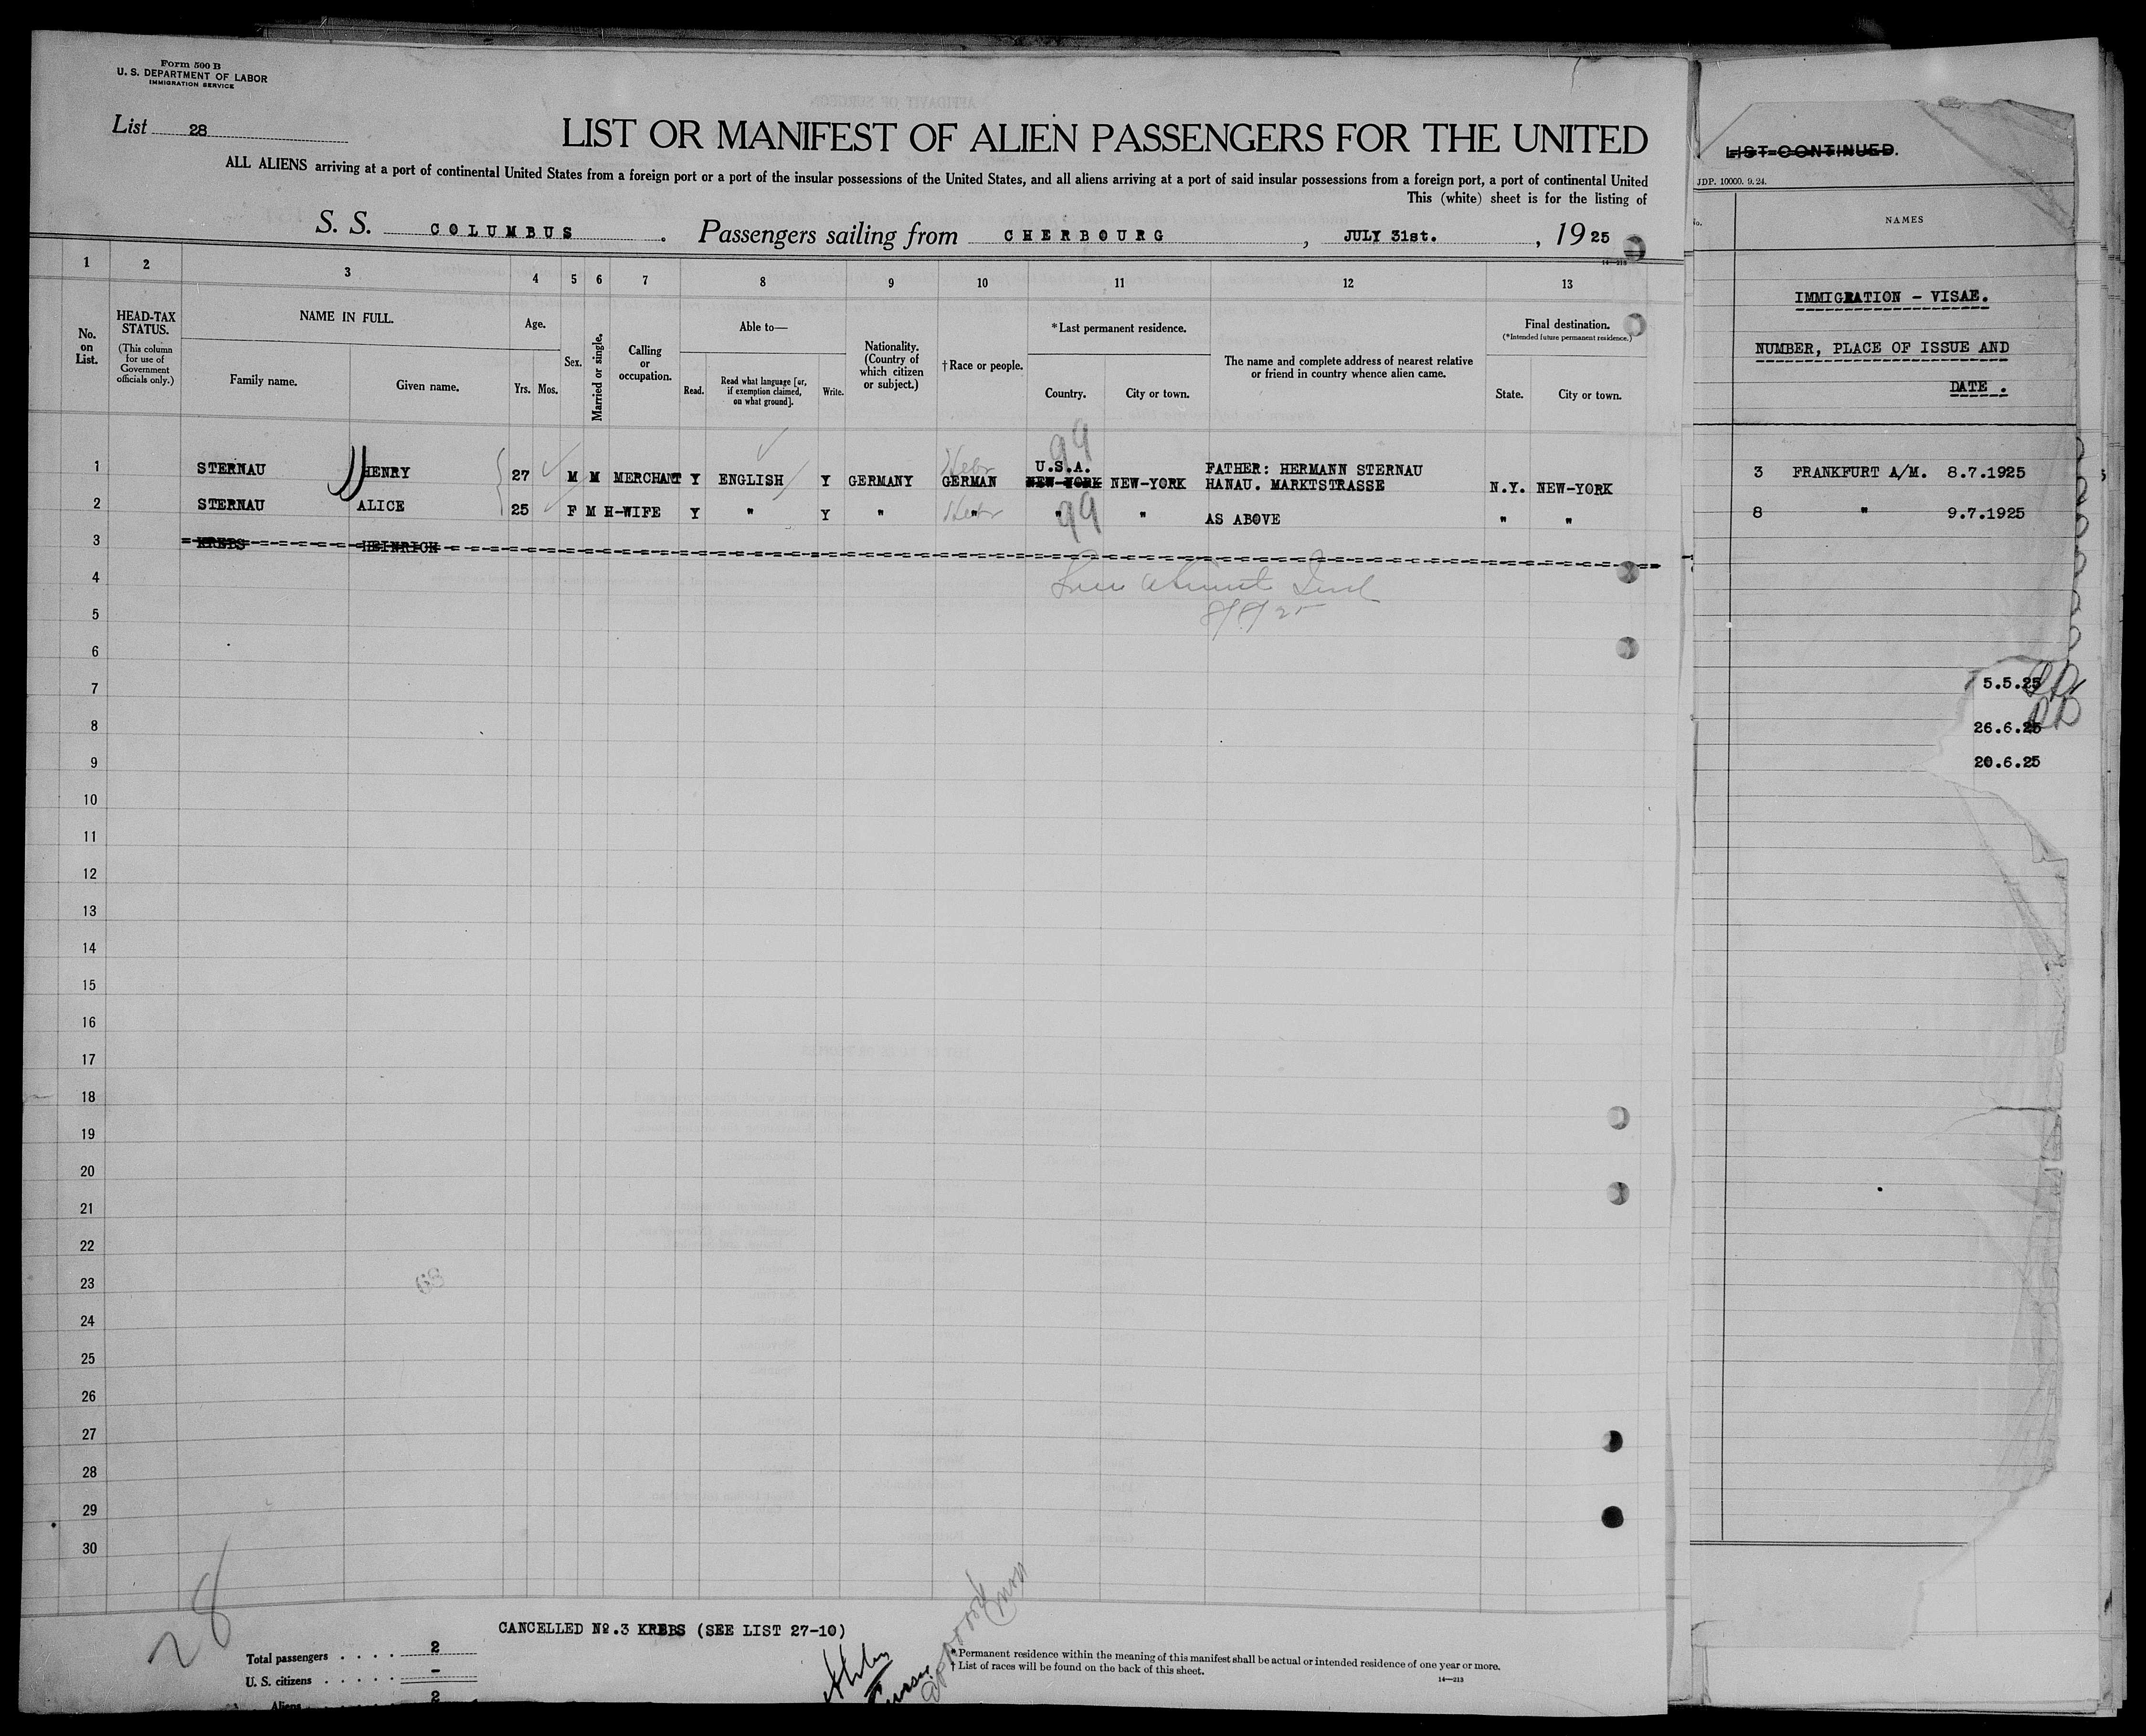 Form 500 B
U. S. DEPARTMENT OF LABOR
IMMIGRATION SERVICE
List 28
LIST OR MANIFEST OF ALIEN PASSENGERS FOR THE UNITED
ALL ALIENS arriving at a port of continental United States from a foreign port or a port of the insular possessions of the United States, and all aliens arriving at a port of said insular possessions from a foreign port, a port of continental United
This (white) sheet is for the listing of
S. S. COLUMBUS. Passengers sailing from CHERBOURG, JULY 31st., 1925
14—213
1 2 3 4 5 6 7 8 9 10 11 12 13
No. on List.
HEAD-TAX STATUS.
(This column for use of Government officials only.)
NAME IN FULL.
Family name. Given name.
Age.
Yrs. Mos.
Sex.
Married or single.
Calling or occupation.
Able to—
Read. Read what language [or, if exemption claimed, on what ground]. Write.
Nationality. (Country of which citizen or subject.)
†Race or people.
*Last permanent residence.
Country. City or town.
The name and complete address of nearest relative or friend in country whence alien came.
Final destination.
(*Intended future permanent residence.)
State. City or town.
99
Hebr
U.S.A.
1 STERNAU HENRY 27 M M MERCHANT Y ENGLISH Y GERMANY GERMAN NEW-YORK NEW-YORK FATHER: HERMANN STERNAU
HANAU. MARKTSTRASSE N.Y. NEW-YORK
2 STERNAU ALICE 25 F M H-WIFE Y " Y " " Hebr " 99 " AS ABOVE " "
3 KREBS HEINRICH
4
8/8/25
5
6
7
8
9
10
11
12
13
14
15
16
17
18
19
20
21
22
23
68
24
25
26
27
28
29
30
28
CANCELLED No.3 KREBS (SEE LIST 27-10)
Total passengers . . . . 2
U. S. citizens . . . . . –
Aliens 2
*Permanent residence within the meaning of this manifest shall be actual or intended residence of one year or more.
†List of races will be found on the back of this sheet.
14—213
LIST CONTINUED.
JDP. 10000. 9. 24.
No. NAMES
IMMIGRATION - VISAE.
NUMBER, PLACE OF ISSUE AND
DATE .
3 FRANKFURT A/M. 8.7.1925
8 " 9.7.1925
5.5.25
26.6.25
20.6.25